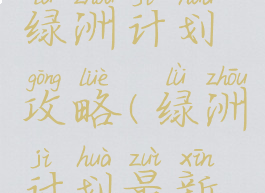 lǜ zhōu jì huà
绿洲计划
gōng lüè lǜ zhōu
攻略(绿洲
jì huà zuì xīn
计划最新